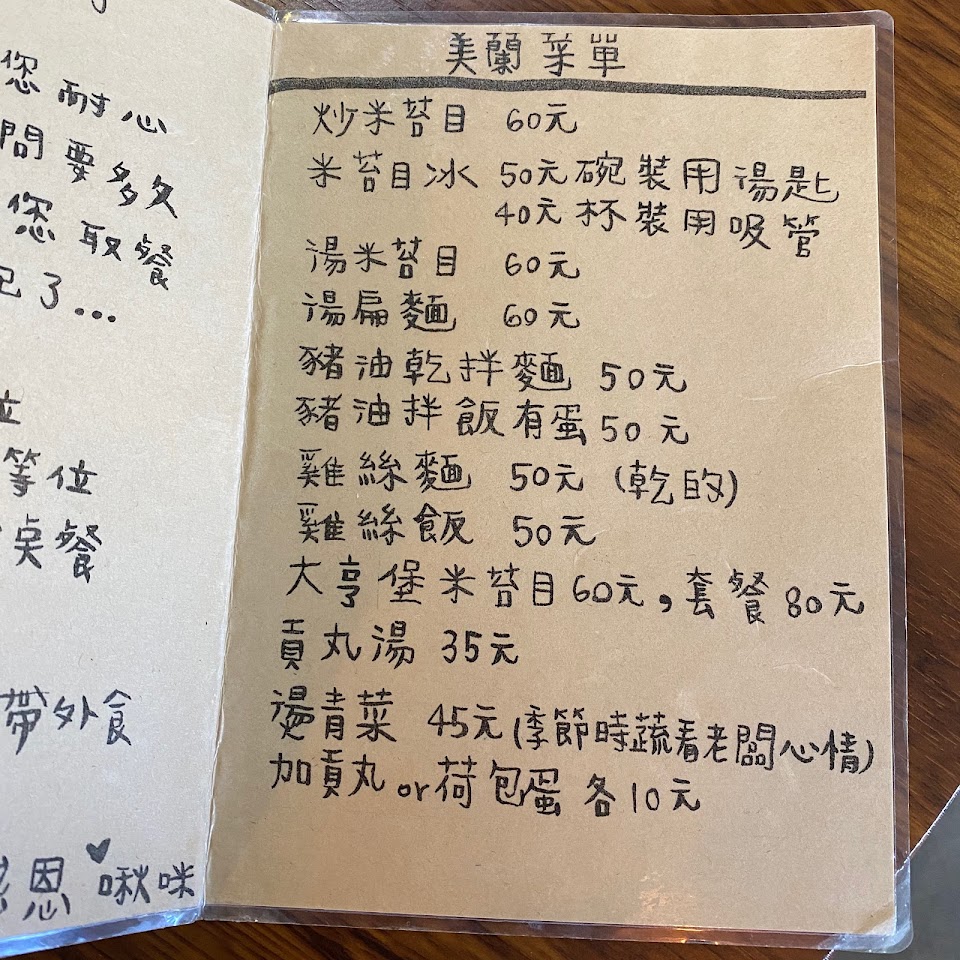 您耐心
問要多久
您取餐
記了...
位
等位
桌餐
帶外食
感恩♥啾咪
美蘭菜單
炒米苔目 60元
米苔目冰 50元碗裝用湯匙
40元杯裝用吸管
湯米苔目 60元
湯扁麵 60元
豬油乾拌麵 50元
豬油拌飯有蛋50元
雞絲麵 50元(乾的)
雞絲飯 50元
大亨堡米苔目60元,套餐80元
貢丸湯 35元
燙青菜 45元(季節時蔬看老闆心情)
加貢丸or荷包蛋 各10元